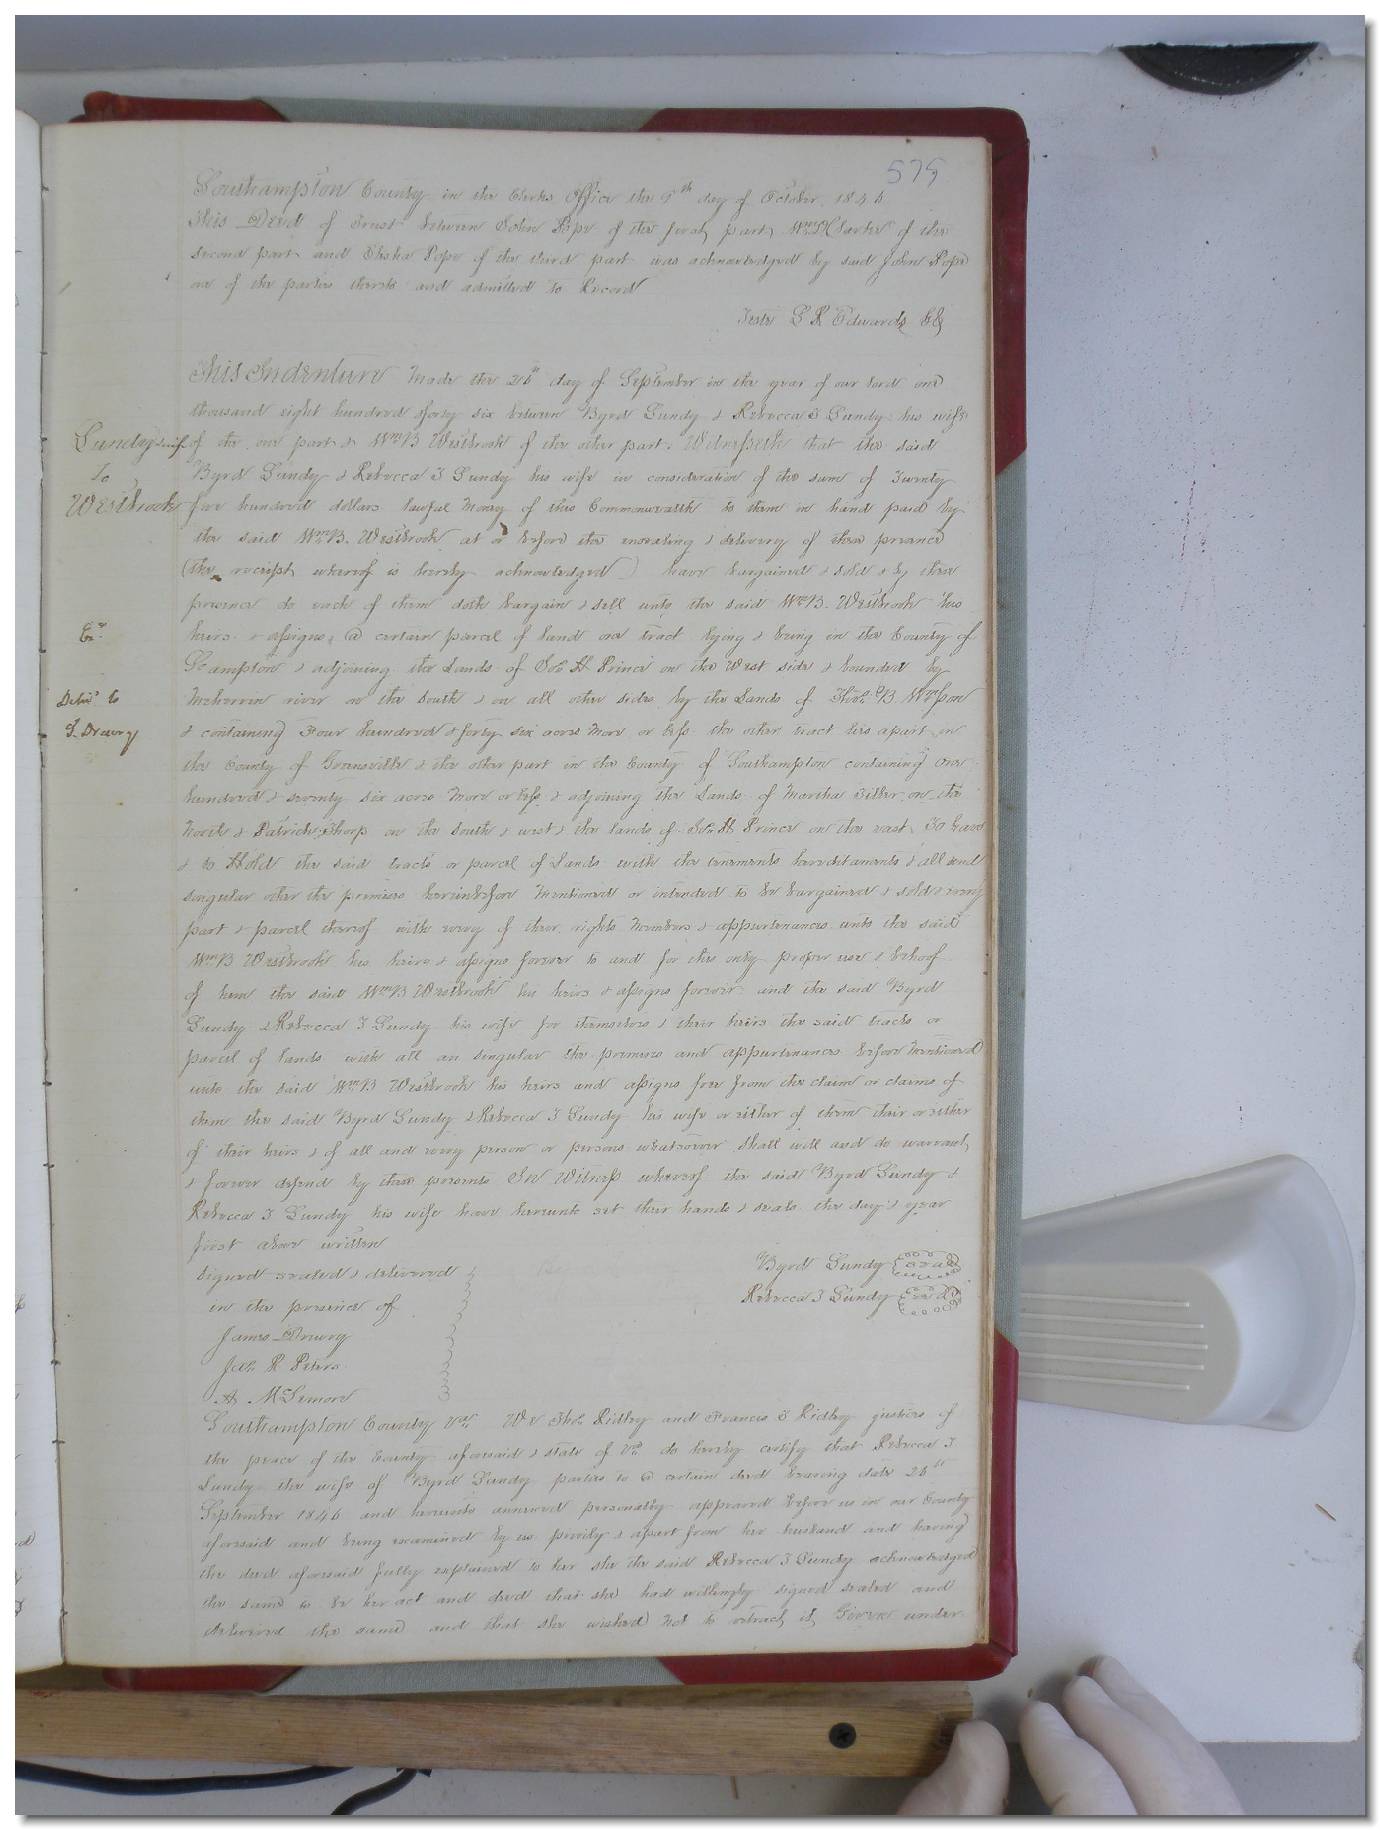 575
Southampton County in the Clerks Office the 9th day of October 1846
This Deed of Trust between John Pope of the first part, of the
second part and Elisha Pope of the third part was acknowledged by said John Pope
one of the parties thereto and admitted to Record
Teste L R Edwards Clk
This Indenture Made the 26th day of September in the year of our lord one
thousand eight hundred & forty six between Byrd Lundy & Rebecca T Lundy his wife
Lundy & wife
to
Westbrook
of the one part & Wm B Westbrook of the other part. Witnesseth that the said
Byrd Lundy & Rebecca T Lundy his wife in consideration of the sum of Twenty
five hundred dollars lawful Money of this Commonwealth to them in hand paid by
the said Wm B. Westbrook at or before the ensealing & delivery of these presence
(the receipt whereof is hereby acknowledged) have bargained & sold & by these
presence do each of them doth bargain & sell unto the said Wm B. Westbrook his
Ex.
heirs & assigns a certain parcel of land one tract lying & being in the County of
So ampton & adjoining the Lands of Jno H Prince on the West side & bounded by
Deliv'd to
J. Drewry
Meherrin river on the South & on all other sides by the Lands of Thos B
& containing Four hundred & forty six acres More or less the other tract lies apart in
the County of Greensville & the other part in the County of Southampton containing One
hundred & seventy six acres More or less & adjoining the Lands of Martha Tiller on the
North & Patrick Thorp on the South & west & the lands of Jno H Prince on the east, To have
& to Hold the said tracts or parcel of Lands with the tenements hereditaments & all and
singular other the premises hereinbefore Mentioned or intended to be bargained & sold & every
part & parcel thereof with every of their rights Members & appurtenances unto the said
Wm B Westbrook his heirs & assigns forever to and for the only proper use & behoof
of him the said Wm B Westbrook his heirs & assigns forever and the said Byrd
Lundy & Rebecca T Lundy his wife for themselves & their heirs the said tracts or
parcel of lands with all an singular the premises and appurtenances before Mentioned
unto the said Wm B Westbrook his heirs and assigns free from the claim or claims of
them the said Byrd Lundy & Rebecca T Lundy his wife or either of them their or either
of their heirs & of all and every person or persons whatsoever Shall will and do warrant
& forever defend by these presents In Witness whereof the said Byrd Lundy &
Rebecca T Lundy his wife have hereunto set their hands & seals the day & year
first above written
Signed sealed & delivered
in the presence of
James Drewry
Jno R Peters
A McLemore
Byrd Lundy seal
Rebecca T Lundy seal
Southampton County Va. We Thos Ridley and Francis T Ridley justices of
the peace of the County aforesaid & state of Va do hereby certify that Rebecca T
Lundy the wife of Byrd Lundy parties to a certain deed bearing date 26th
September 1846 and hereunto annexed personally appeared before us in our County
aforesaid and being examined by us privily & apart from her husband and having
the deed aforesaid fully explained to her she the said Rebecca T Lundy acknowledged
the same to be her act and deed that she had willingly signed sealed and
delivered the same and that she wished not to retract it Given under